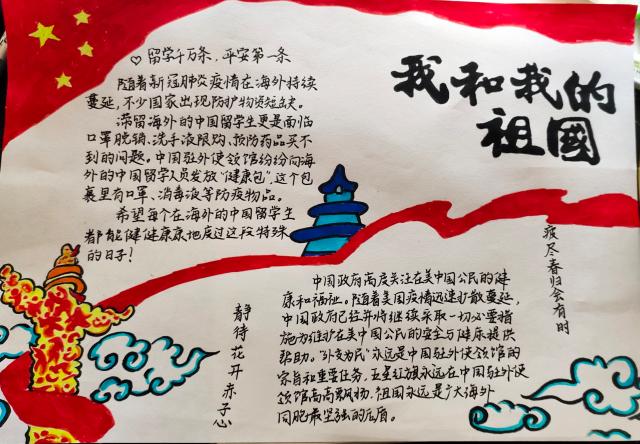 我和我的
祖國
♡ 留学千万条，平安第一条
随着新冠肺炎疫情在海外持续
蔓延，不少国家出现防护物资短缺。
滞留海外的中国留学生更是面临
口罩脱销、洗手液限购、预防药品买不
到的问题。中国驻外使领馆纷纷向海
外的中国留学人员发放“健康包”，这个包
裹里有口罩、消毒液等防疫物品。
希望每个在海外的中国留学生
都能健健康康地度过这段特殊
的日子！
疫尽春归会有时
静待花开赤子心
中国政府高度关注在美中国公民的健
康和福祉。随着美国疫情迅速扩散蔓延，
中国政府已经并将继续采取一切必要措
施为维护在美中国公民的安全与健康提供
帮助。“外交为民”永远是中国驻外使领馆的
宗旨和重要任务，五星红旗永远在中国驻外使
领馆高高飘扬，祖国永远是广大海外
同胞最坚强的后盾。